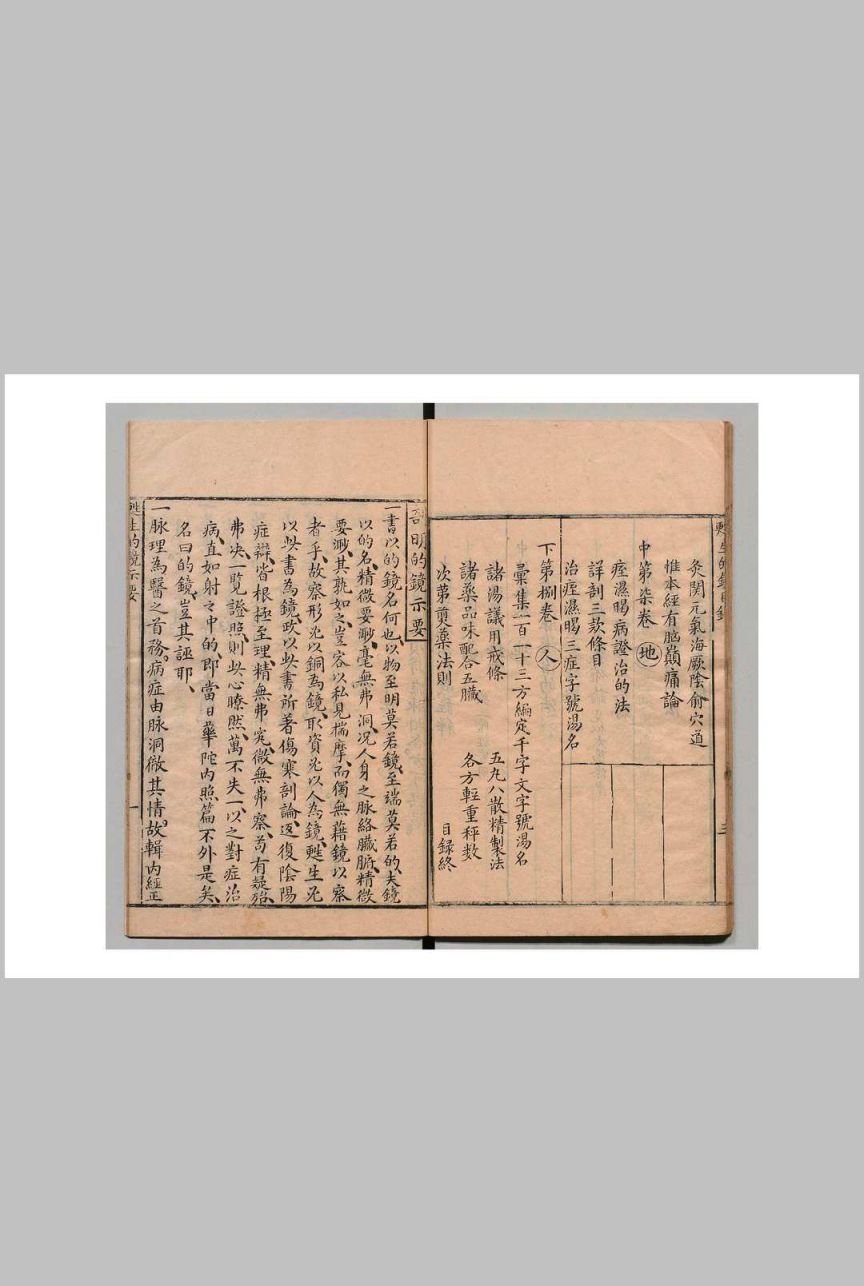 甦生的鏡目錄
三
灸関元氣海厥陰俞穴道
惟本經有脳巔痛論
中第柒卷 地
痓濕暍病證治的法
詳剖三款條目
治痓濕暍三症字號湯名
下第捌卷 人
彙集一百一十三方編定千字文字號湯名
諸湯議用戒條 五九八散精製法
諸藥品味配合五臓 各方輕重秤数
次第煎藥法則 目録終
吾明的鏡示要
一書以的鏡名何也以物至明莫若鏡至端莫若的夫鏡
以的名精微要渺毫無弗洞况人身之脉絡臓腑精微
要渺其孰如之豈容以私見揣摩而獨無藉鏡以察
者乎故察形必以銅為鏡取資必以人為鏡甦生必
以此書為鏡政以此書所著傷寒剖論返復陰陽
症辯皆根極至理精無弗究微無弗察苟有疑殆
弗决一覧證照則此心暸然萬不失一以之對症治
病直如射之中的即當日華陀内照篇不外是矣
名曰的鏡豈其誣耶
一脉理為醫之首務病症由脉洞微其情故輯内經正
甦生的鏡示要
一